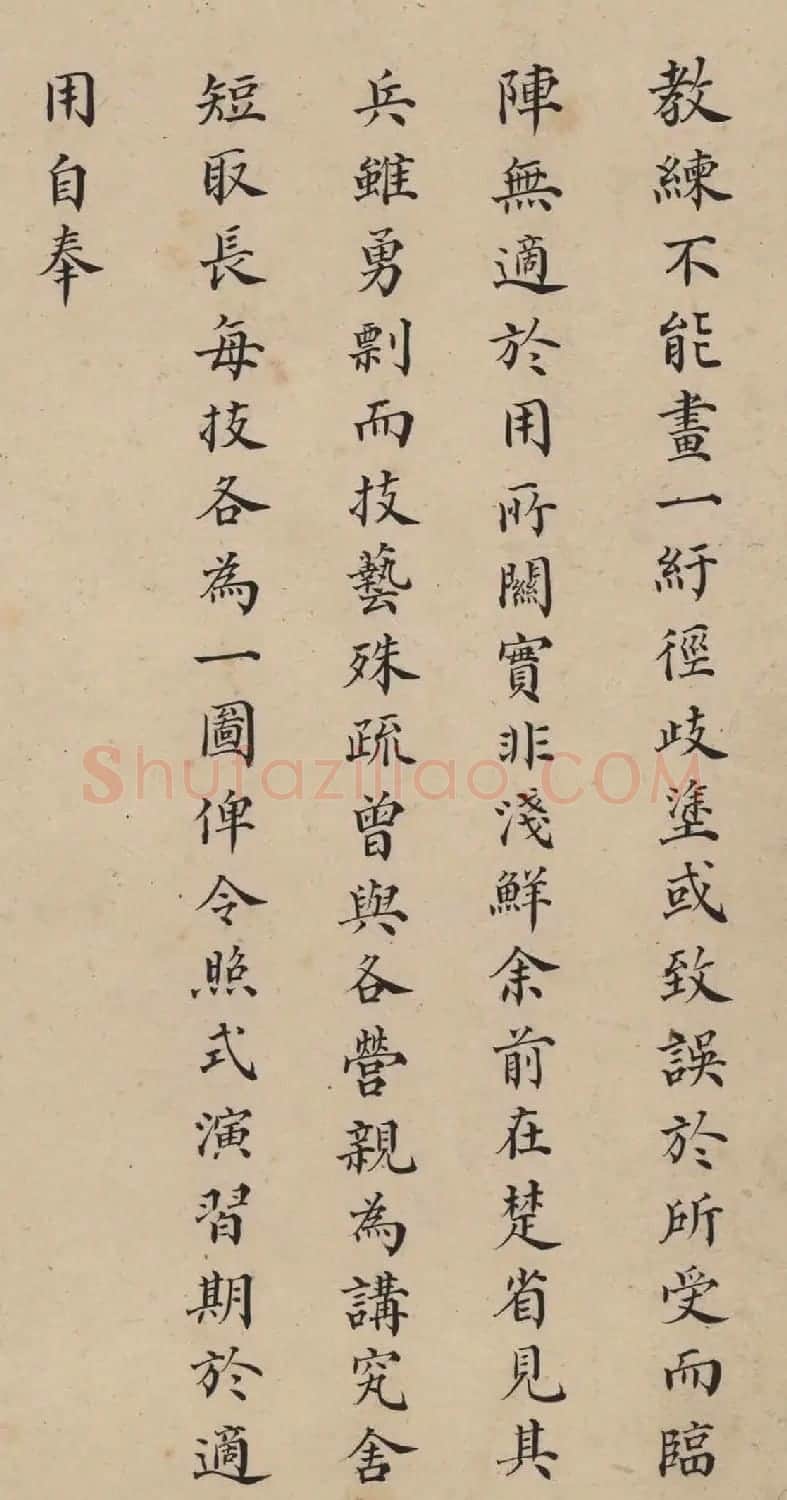 教練不能畫一紆徑歧塗或致誤於所受而臨
陣無適於用所關實非淺鮮余前在楚省見其
兵雖勇剽而技藝殊疏曾與各營親為講究舍
短取長每技各為一圖俾令照式演習期於適
用自奉
Shufaziliao.COM